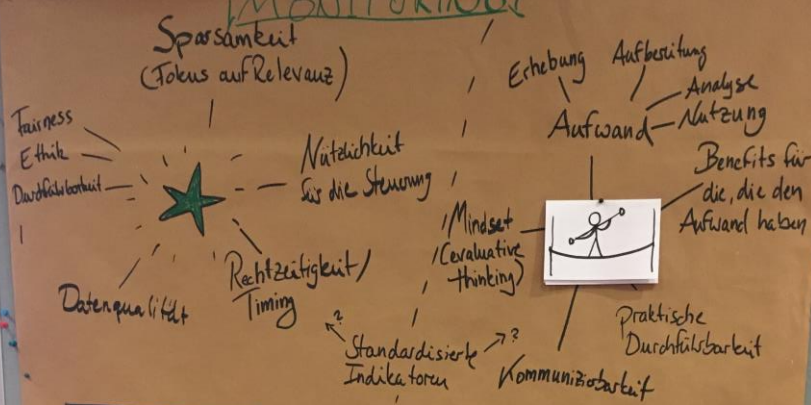 MONITORING
Sparsamkeit
(Fokus auf Relevanz)
Fairness
Ethik
Durchführbarkeit
Nützlichkeit
für die Steuerung
Datenqualität
Rechtzeitigkeit/
Timing
Standardisierte
Indikatoren
?
?
Erhebung
Aufbereitung
Analyse
Nutzung
Aufwand
Benefits für
die, die den
Aufwand haben
Mindset
(evaluative
thinking)
Praktische
Durchführbarkeit
Kommunizierbarkeit